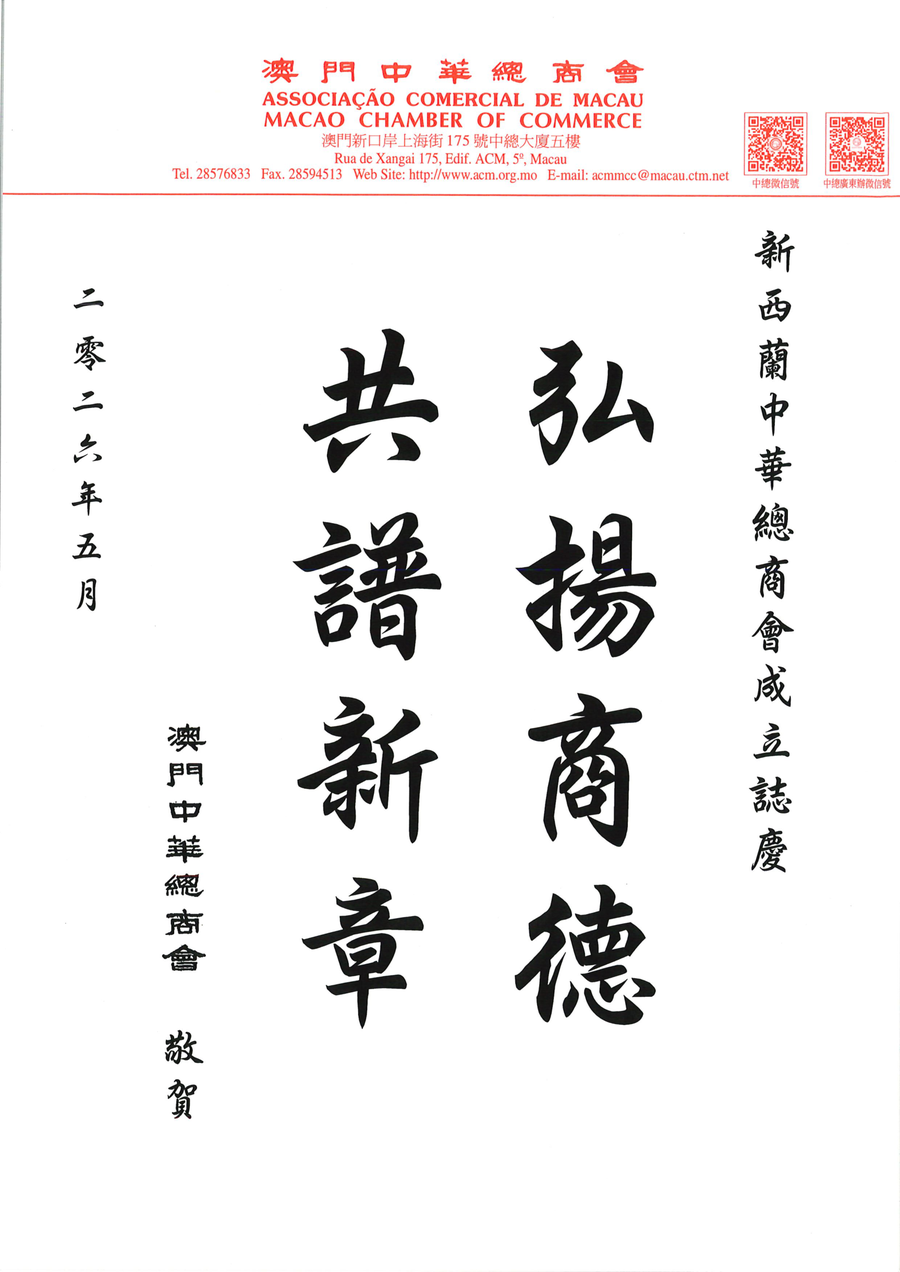 澳門中華總商會
ASSOCIAÇÃO COMERCIAL DE MACAU
MACAO CHAMBER OF COMMERCE
澳門新口岸上海街 175 號中總大廈五樓
Rua de Xangai 175, Edif. ACM, 5º, Macau
Tel. 28576833 Fax. 28594513 Web Site: http://www.acm.org.mo E-mail: acmmcc@macau.ctm.net
中總微信號
中總廣東辦微信號
新西蘭中華總商會成立誌慶
弘揚商德
共譜新章
澳門中華總商會 敬賀
二零二六年五月